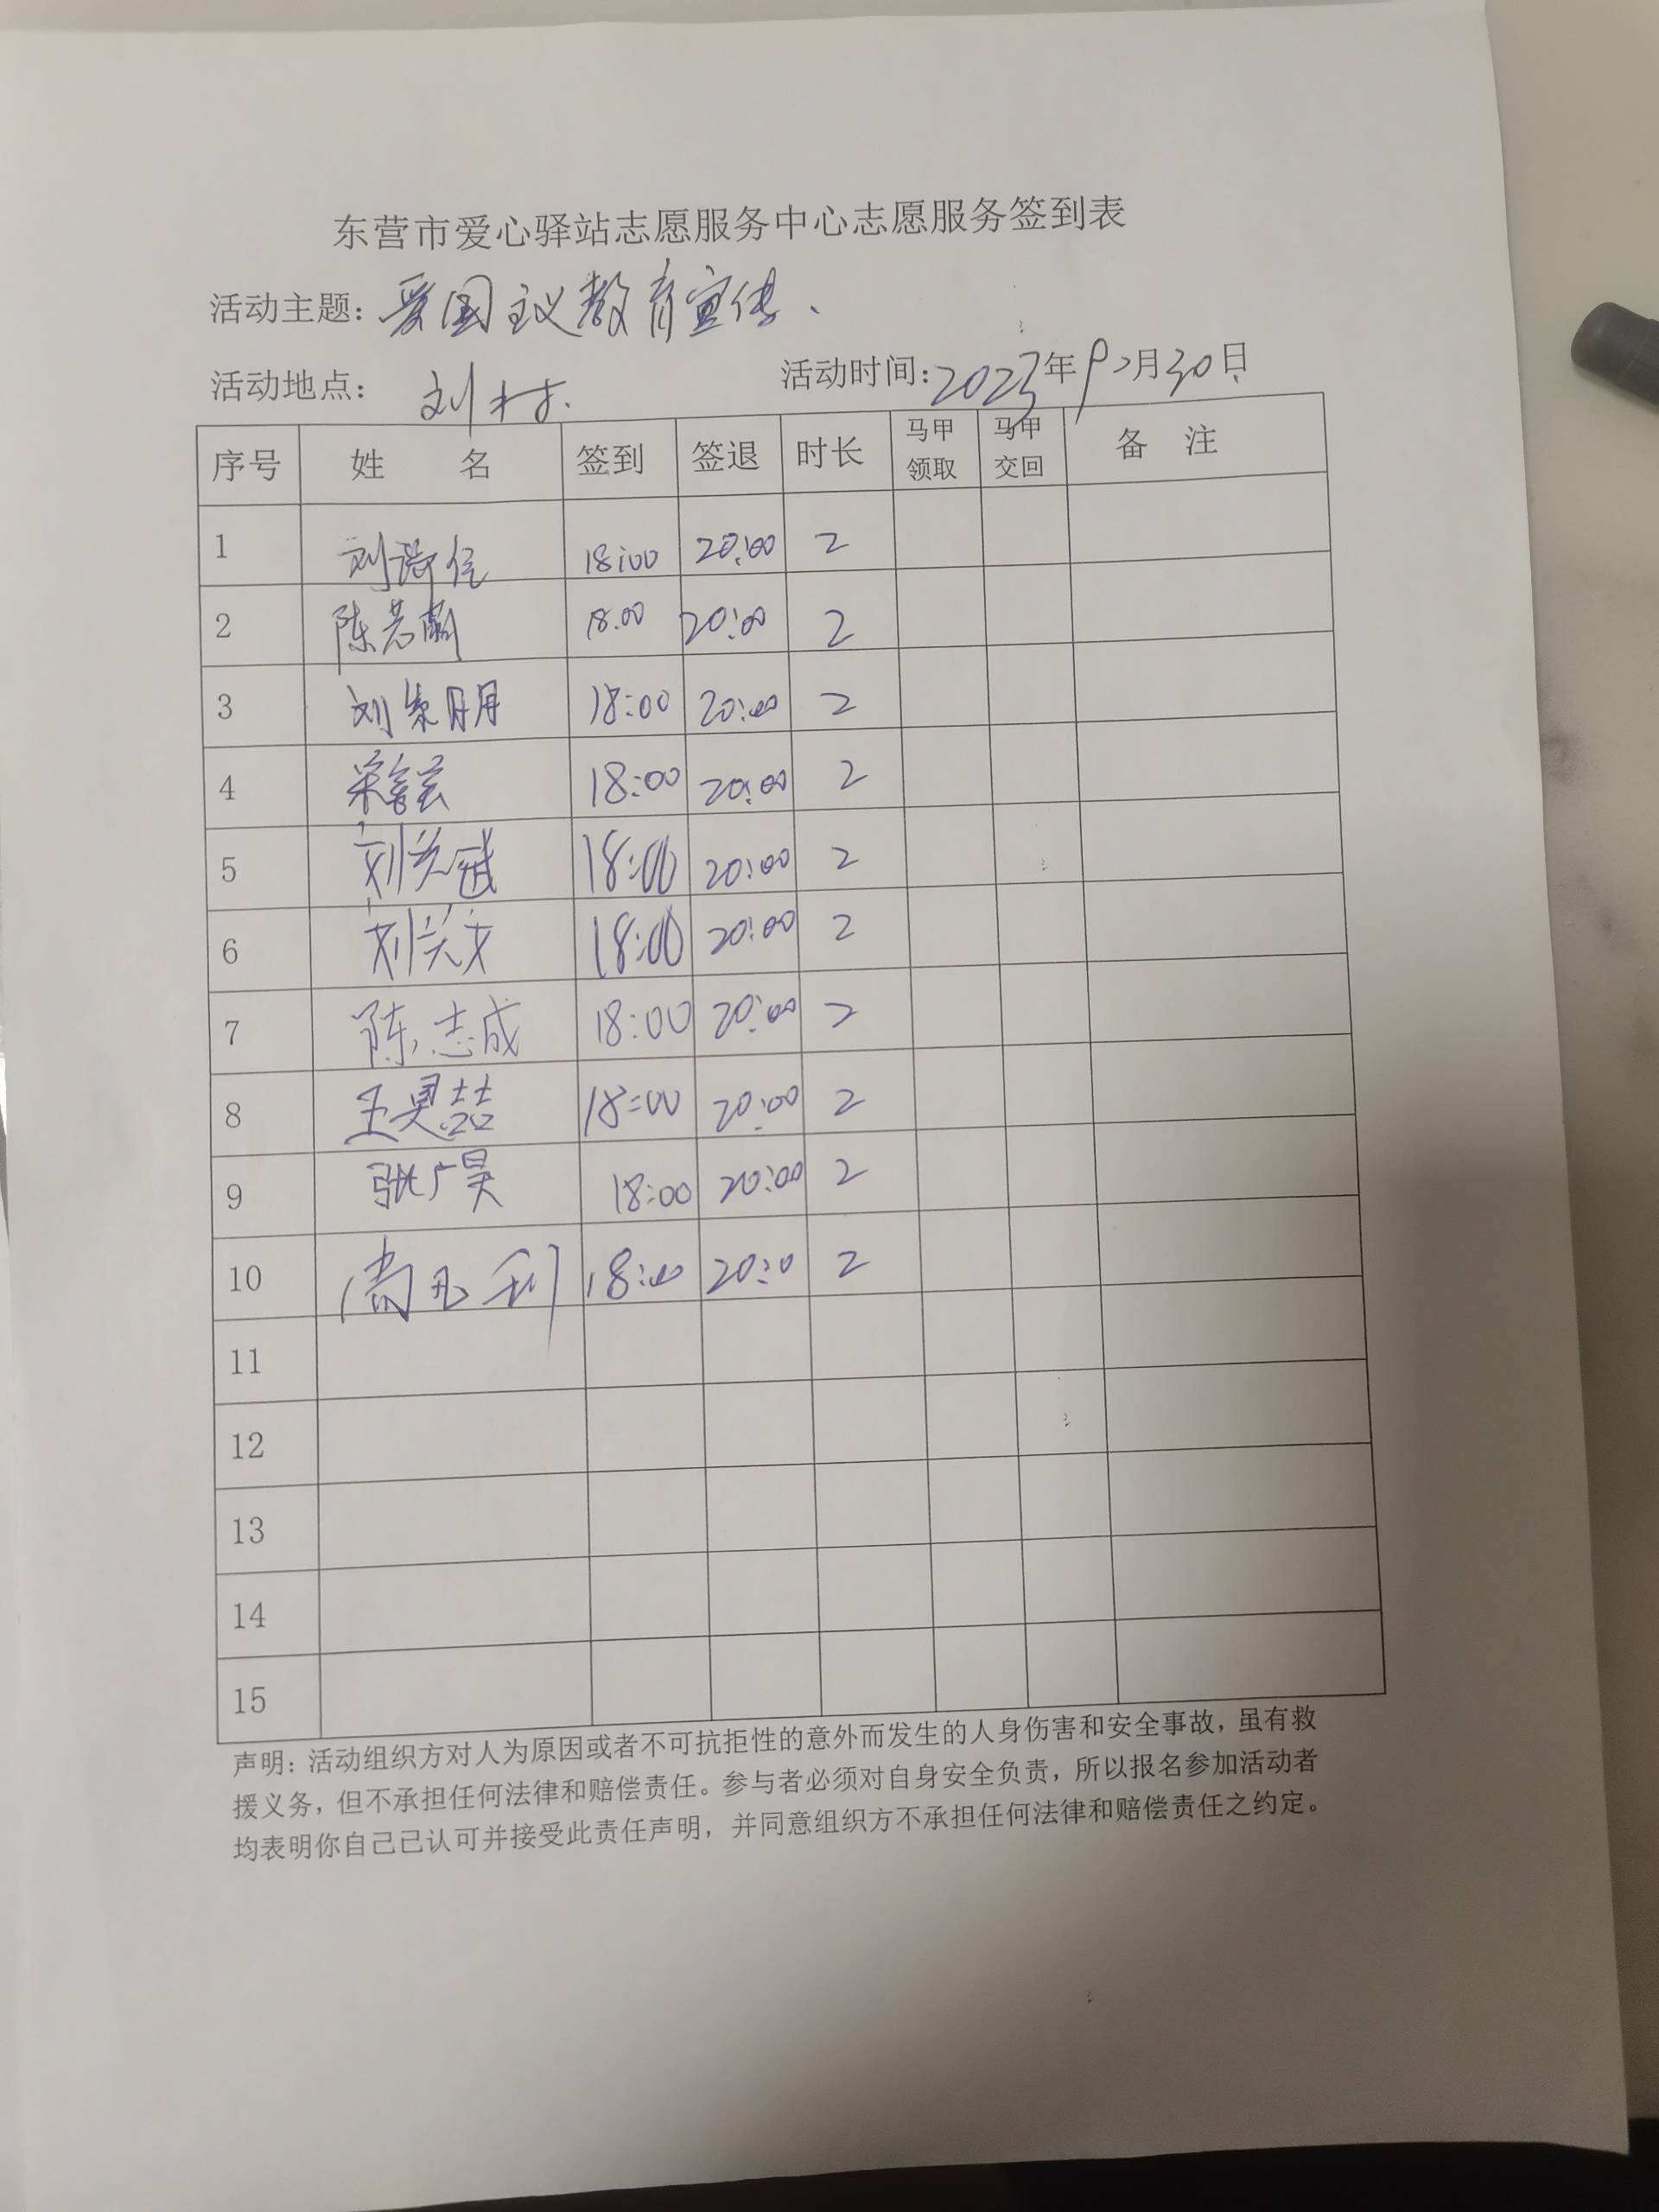 东营市爱心驿站志愿服务中心志愿服务签到表
活动主题：爱国主义教育宣传、
活动地点： 刘村. 活动时间：2023年9月30日
序号 姓 名 签到 签退 时长 马甲领取 马甲交回 备 注
1 刘 18:00 20:00 2
2 陈若兰 18:00 20:00 2
3 刘朋 18:00 20:00 2
4 宋 18:00 20:00 2
5 刘兴斌 18:00 20:00 2
6 刘兴文 18:00 20:00 2
7 陈志成 18:00 20:00 2
8 王昊喆 18:00 20:00 2
9 张广昊 18:00 20:00 2
10 尚玉利 18:00 20:0 2
11
12
13
14
15
声明：活动组织方对人为原因或者不可抗拒性的意外而发生的人身伤害和安全事故，虽有救
援义务，但不承担任何法律和赔偿责任。参与者必须对自身安全负责，所以报名参加活动者
均表明你自己已认可并接受此责任声明，并同意组织方不承担任何法律和赔偿责任之约定。